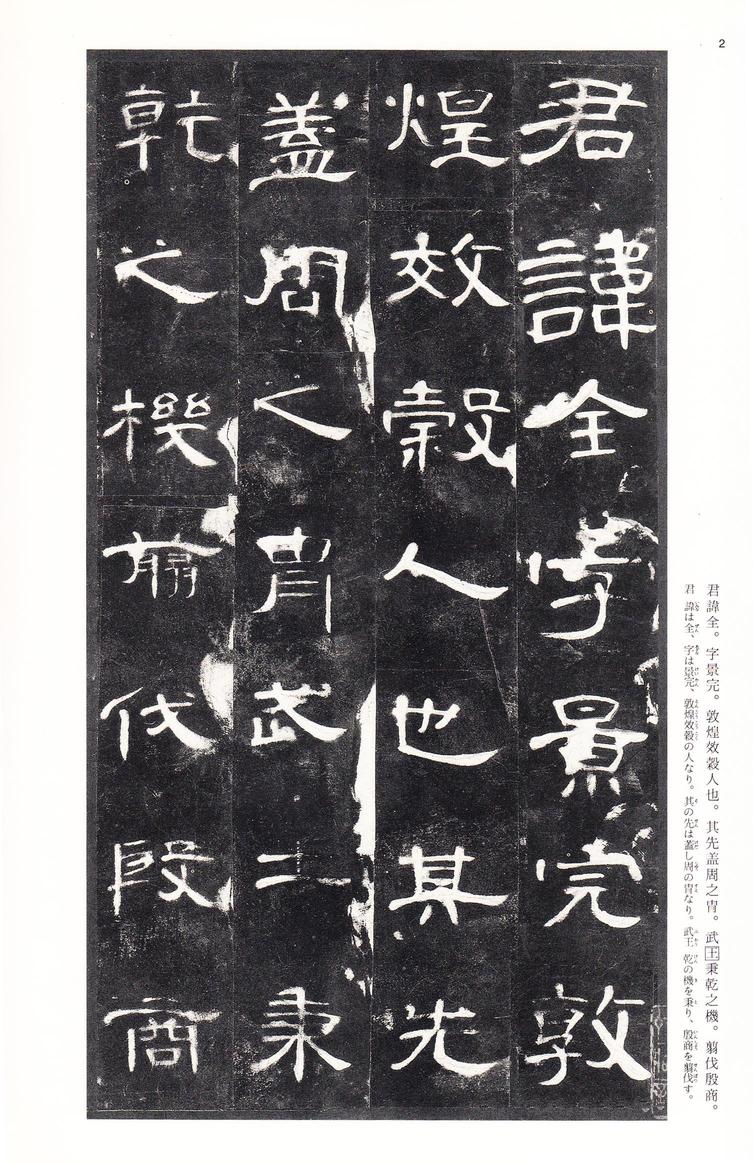 2
君諱全字景完敦
煌效穀人也其先
蓋周之胄武王秉
乾之機翦伐殷商
君諱全。字景完。敦煌效穀人也。其先盖周之胄。武王秉乾之機。翦伐殷商。
君 諱は全、字は景完、敦煌效穀の人なり。其の先は蓋し周の胄なり。武王 乾の機を秉り、殷商を翦伐す。